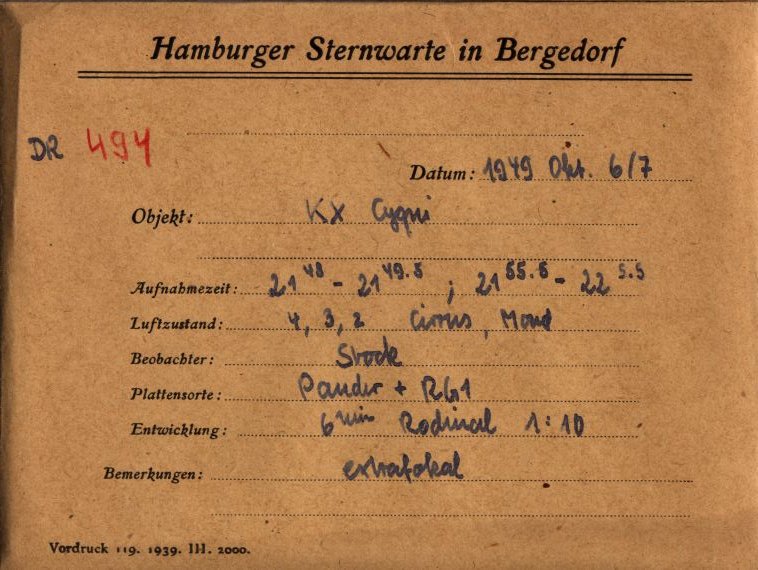 Hamburger Sternwarte in Bergedorf
DR 494
Datum: 1949 Okt. 6/7
Objekt: KX Cygni
Aufnahmezeit: 21 48 - 21 49.5 ; 21 55.5 - 22 5.5
Luftzustand: 4, 3, 2 Cirrus, Mond
Beobachter: Stock
Plattensorte: + RG1
Entwicklung: 6 min Rodinal 1:10
Bemerkungen: extrafokal
Vordruck 119. 1939. III. 2000.